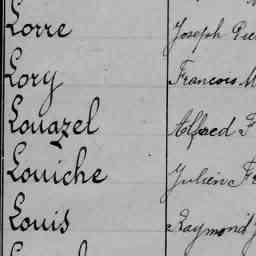 Lorre Joseph
Lory Francois
Louazel Alfred
Louiche Julien
Louis Raymond